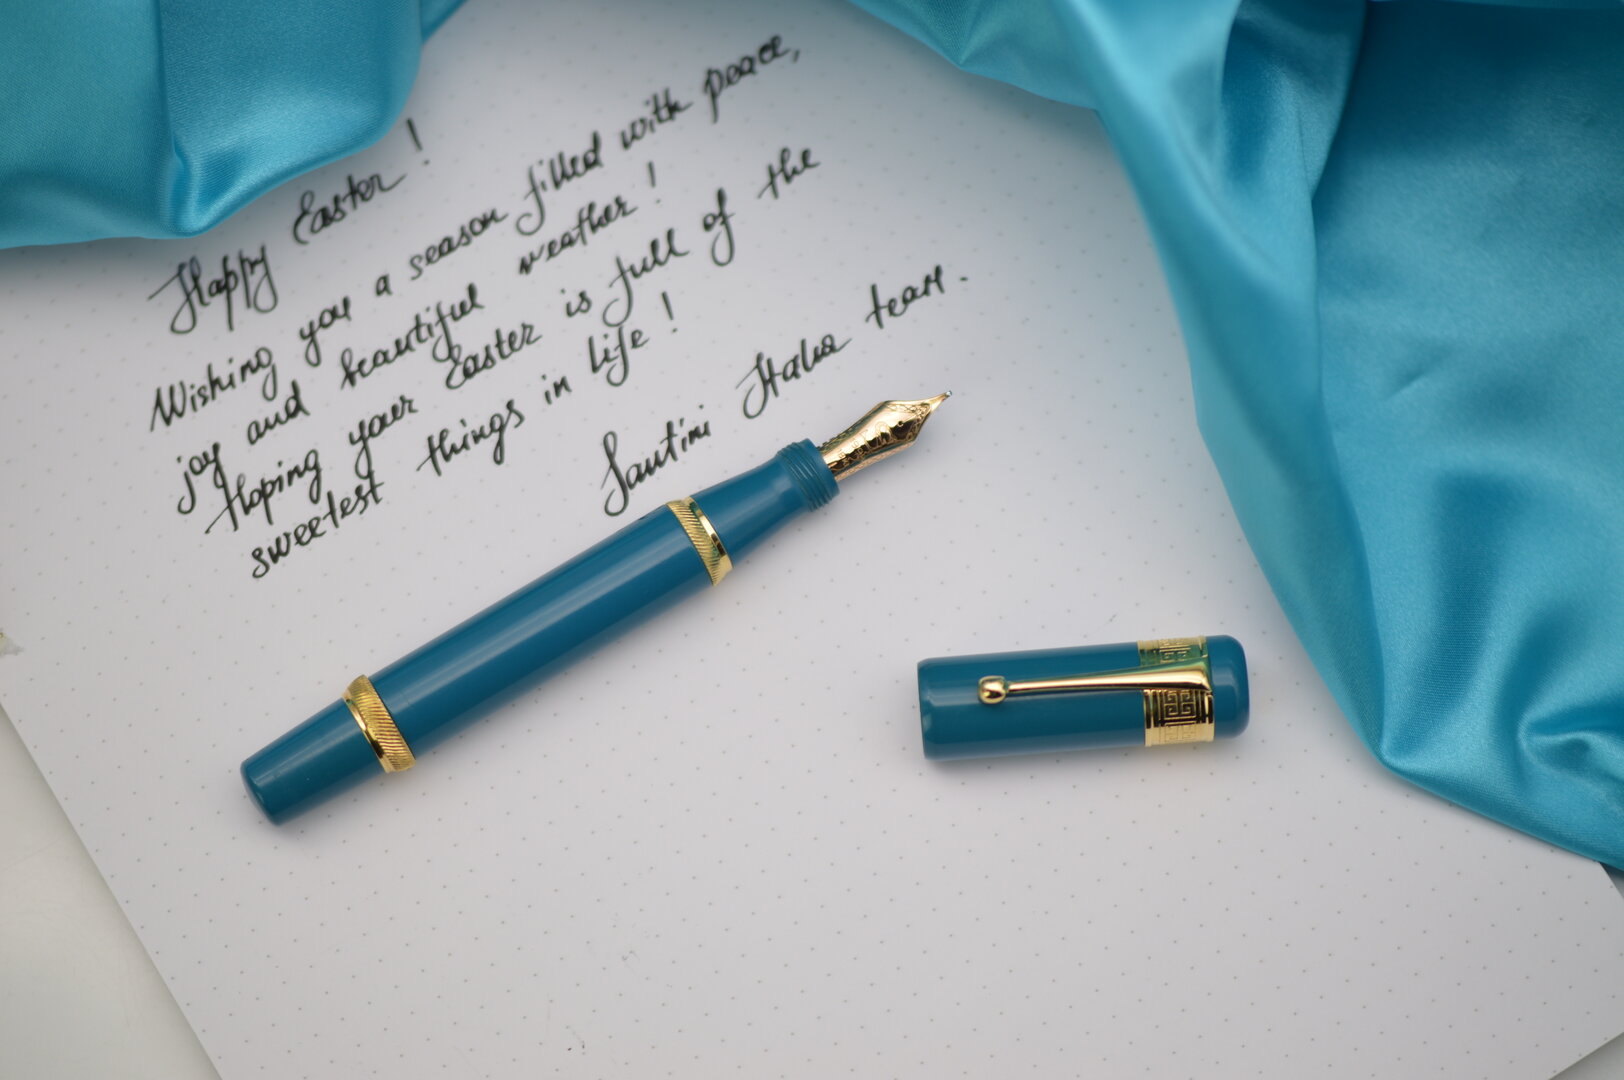 Happy Easter!
Wishing you a season filled with peace,
joy and beautiful weather!
Hoping your Easter is full of the
sweetest things in life!
Santini Italia team.